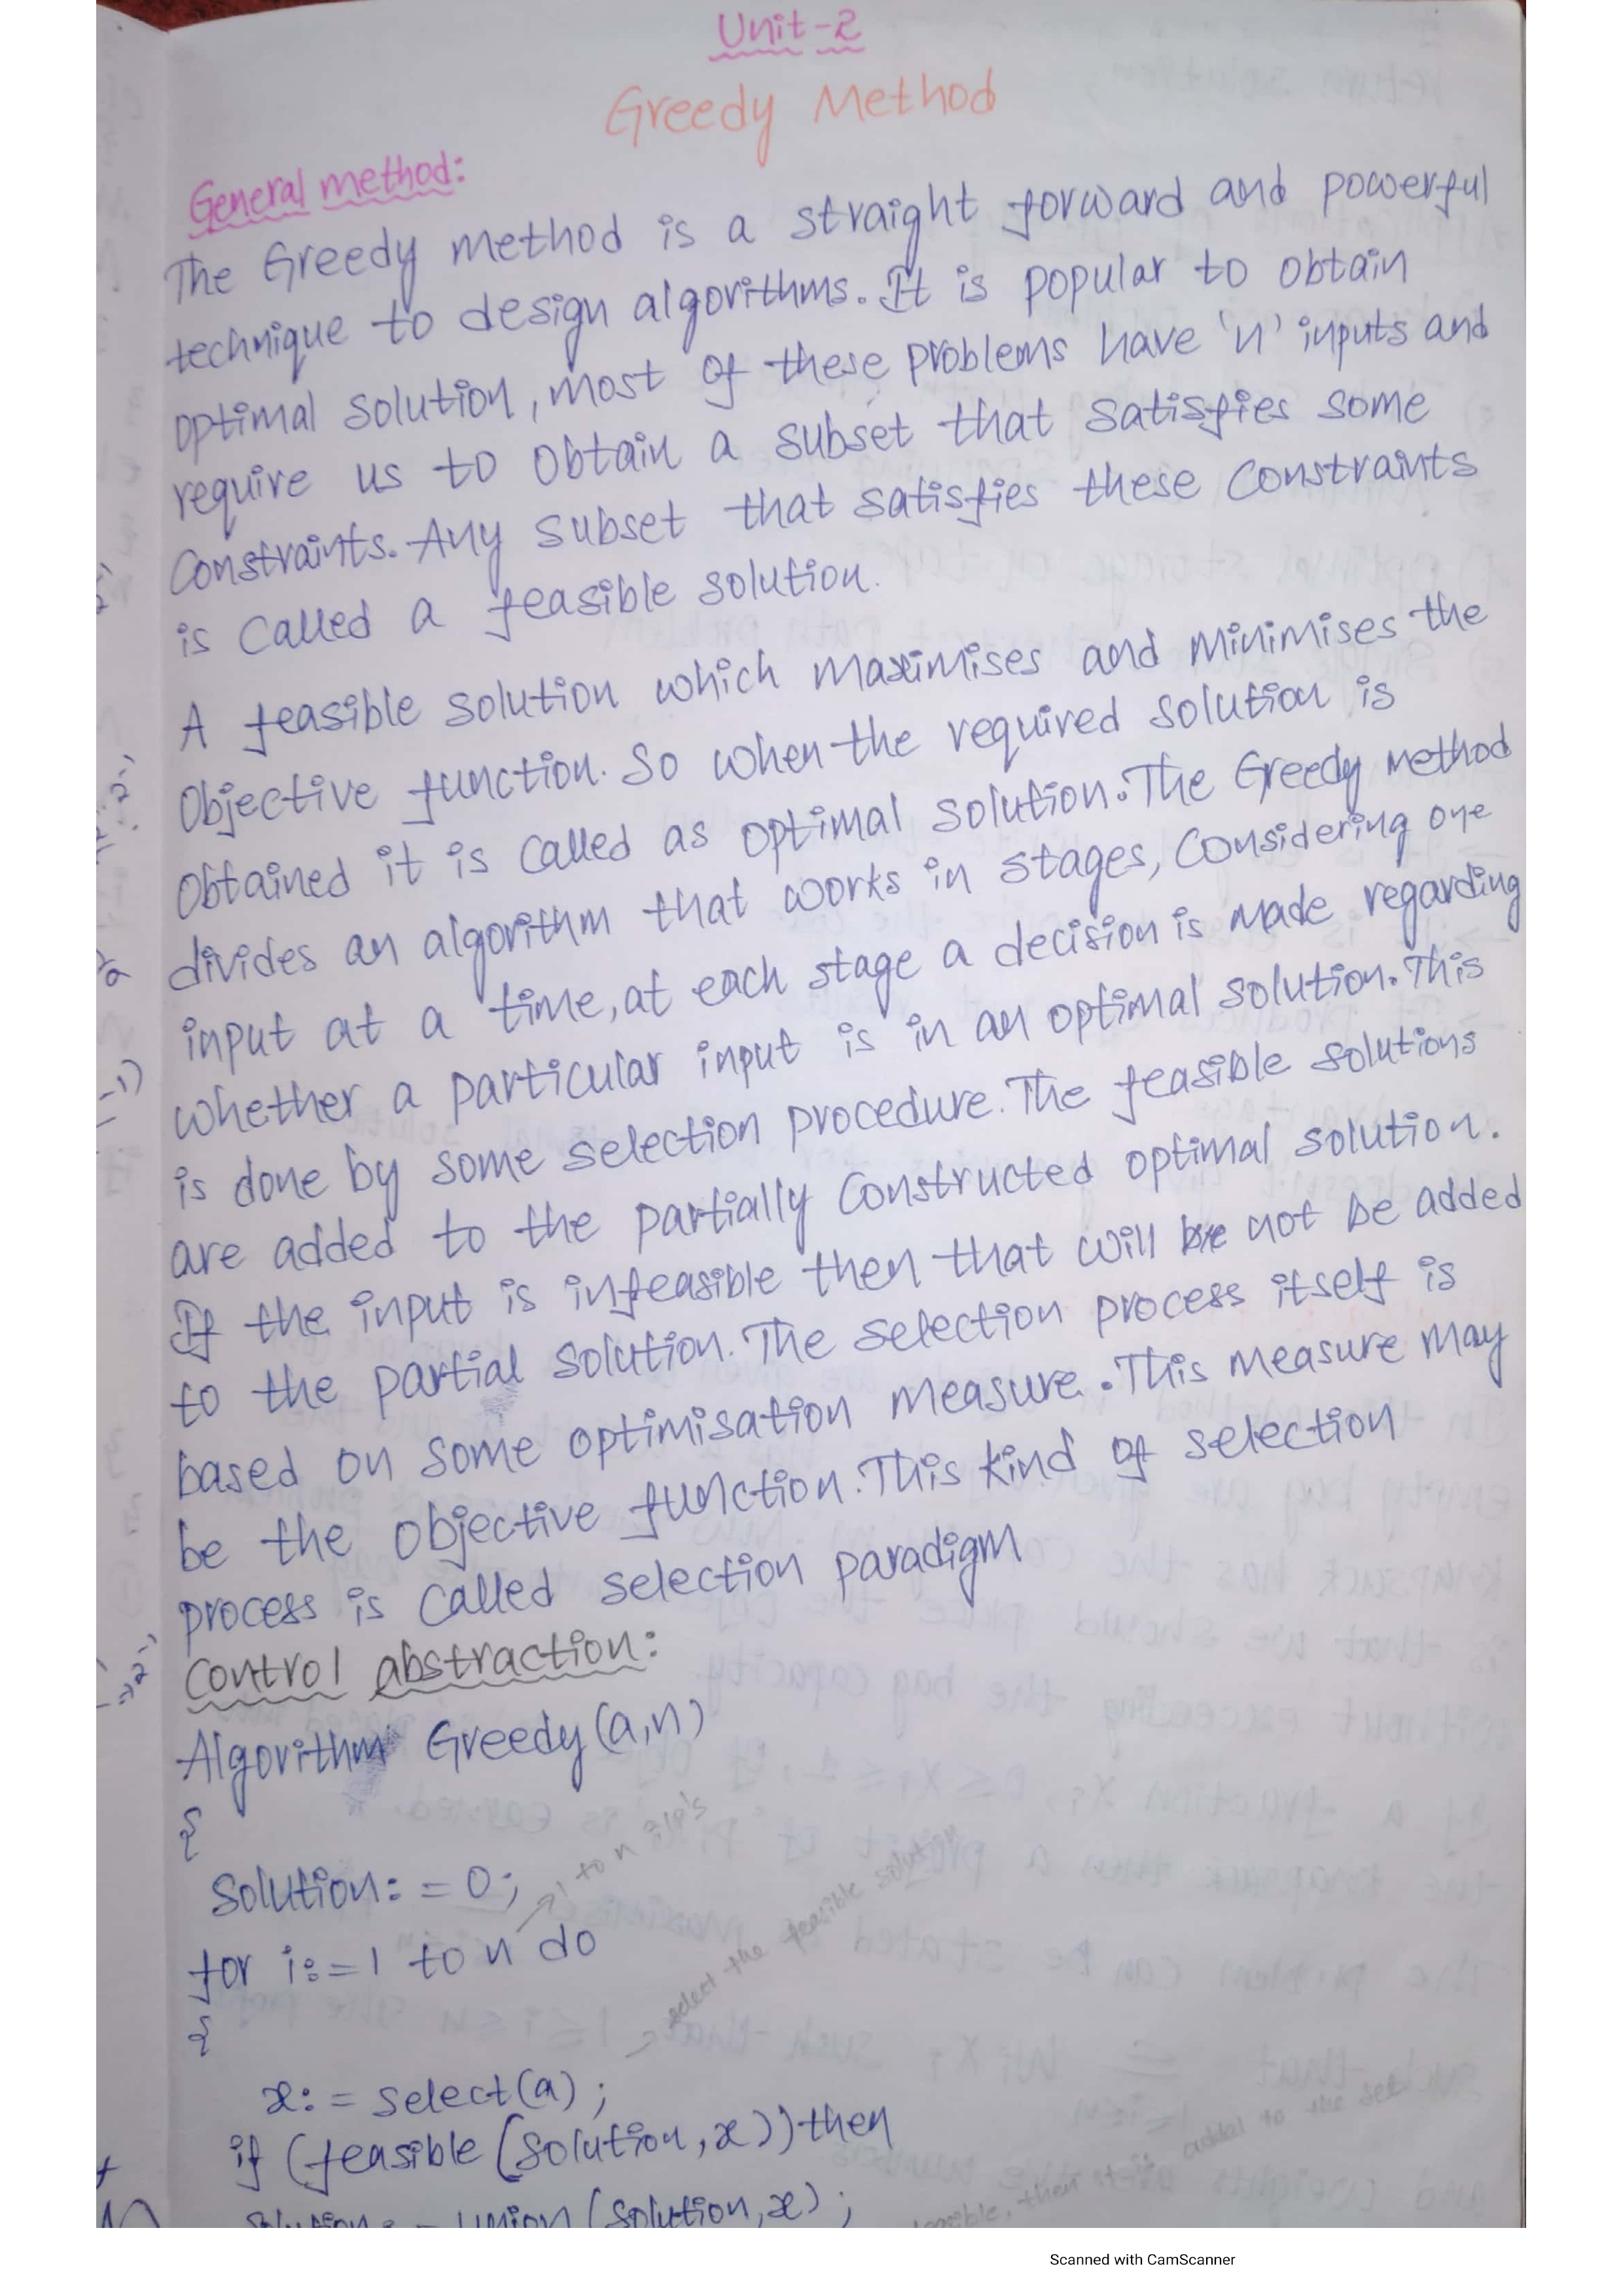 Unit-2
Greedy Method
General method:
The Greedy method is a straight forward and powerful
technique to design algorithms. It is popular to obtain
optimal solution, most of these problems have 'n' inputs and
require us to obtain a subset that satisfies some
constraints. Any subset that satisfies these constraints
is called a feasible solution.
A feasible solution which maximises and minimises the
objective function. So when the required solution is
obtained it is called as optimal solution. The Greedy method
divides an algorithm that works in stages, considering one
input at a time, at each stage a decision is made regarding
whether a particular input is in an optimal solution. This
is done by some selection procedure. The feasible solutions
are added to the partially constructed optimal solution.
If the input is infeasible then that will be not be added
to the partial solution. The selection process itself is
based on some optimisation measure. This measure may
be the objective function. This kind of selection
process is called selection paradigm
Control abstraction:
Algorithm Greedy (a,n)
{
Solution: = 0;
1 to n i/p's
for i:=1 to n do
select the feasible solution
{
x: = select(a);
if (feasible (solution, x)) then
feasible, then it is added to the set
Solution: = union (solution, x);
Scanned with CamScanner